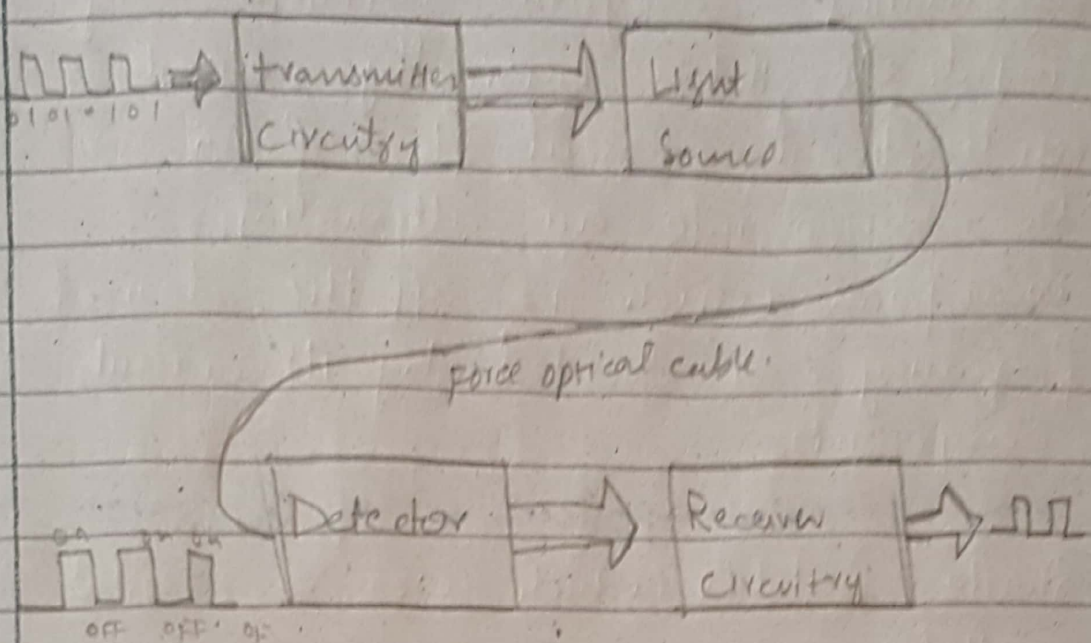 0 1 0 1 0 1 0 1
transmitter
Circuitry
Light
Source
Force optical cable.
Detector
Receiver
Circuitry
on on on
OFF OFF OF